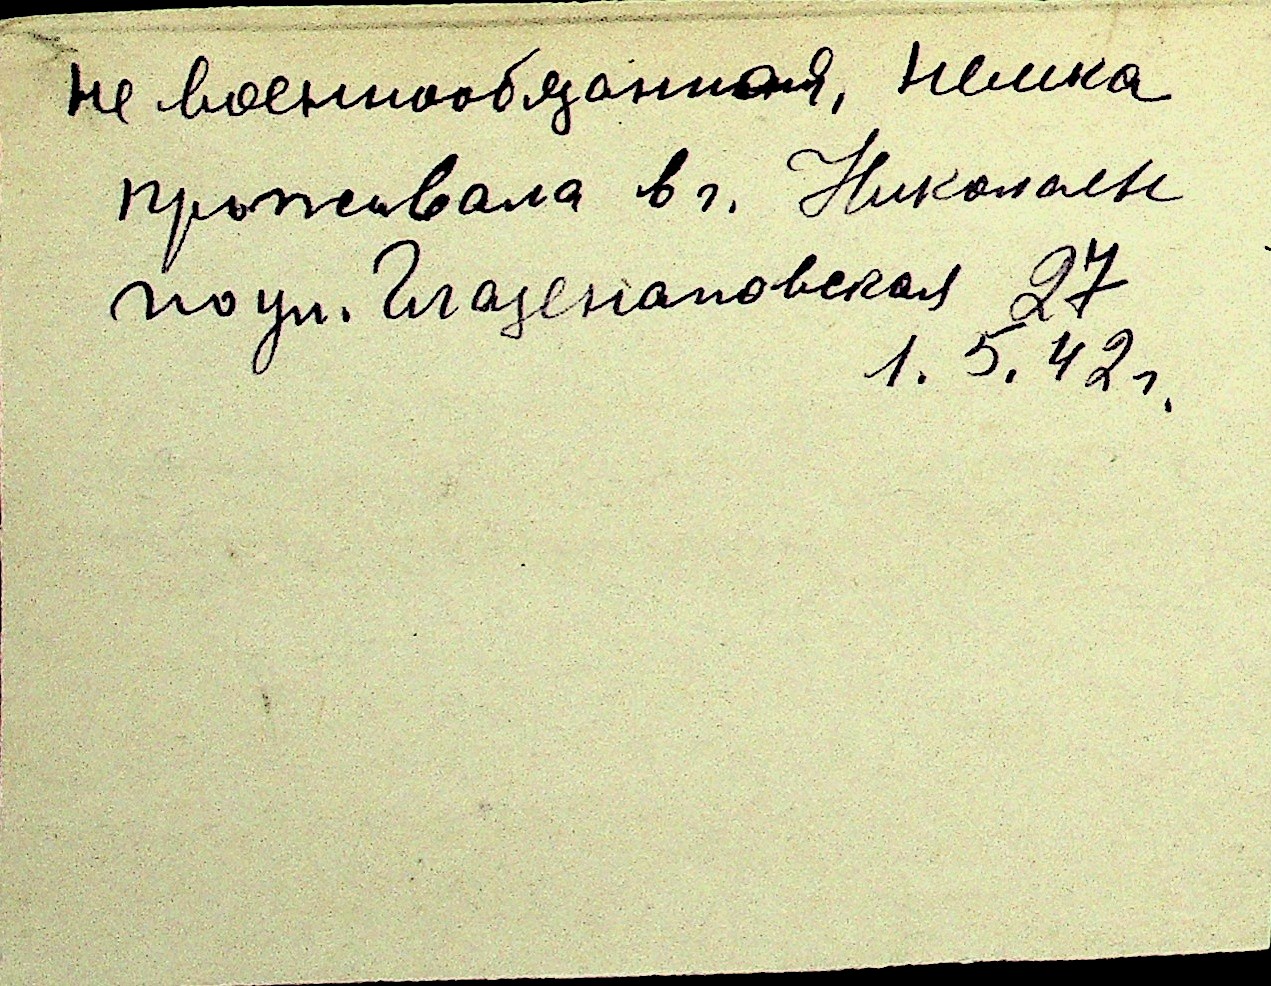 не военнообязанная, немка
проживала в г. Николаен
по ул. Глазенаповская 27
1. 5. 42 г.